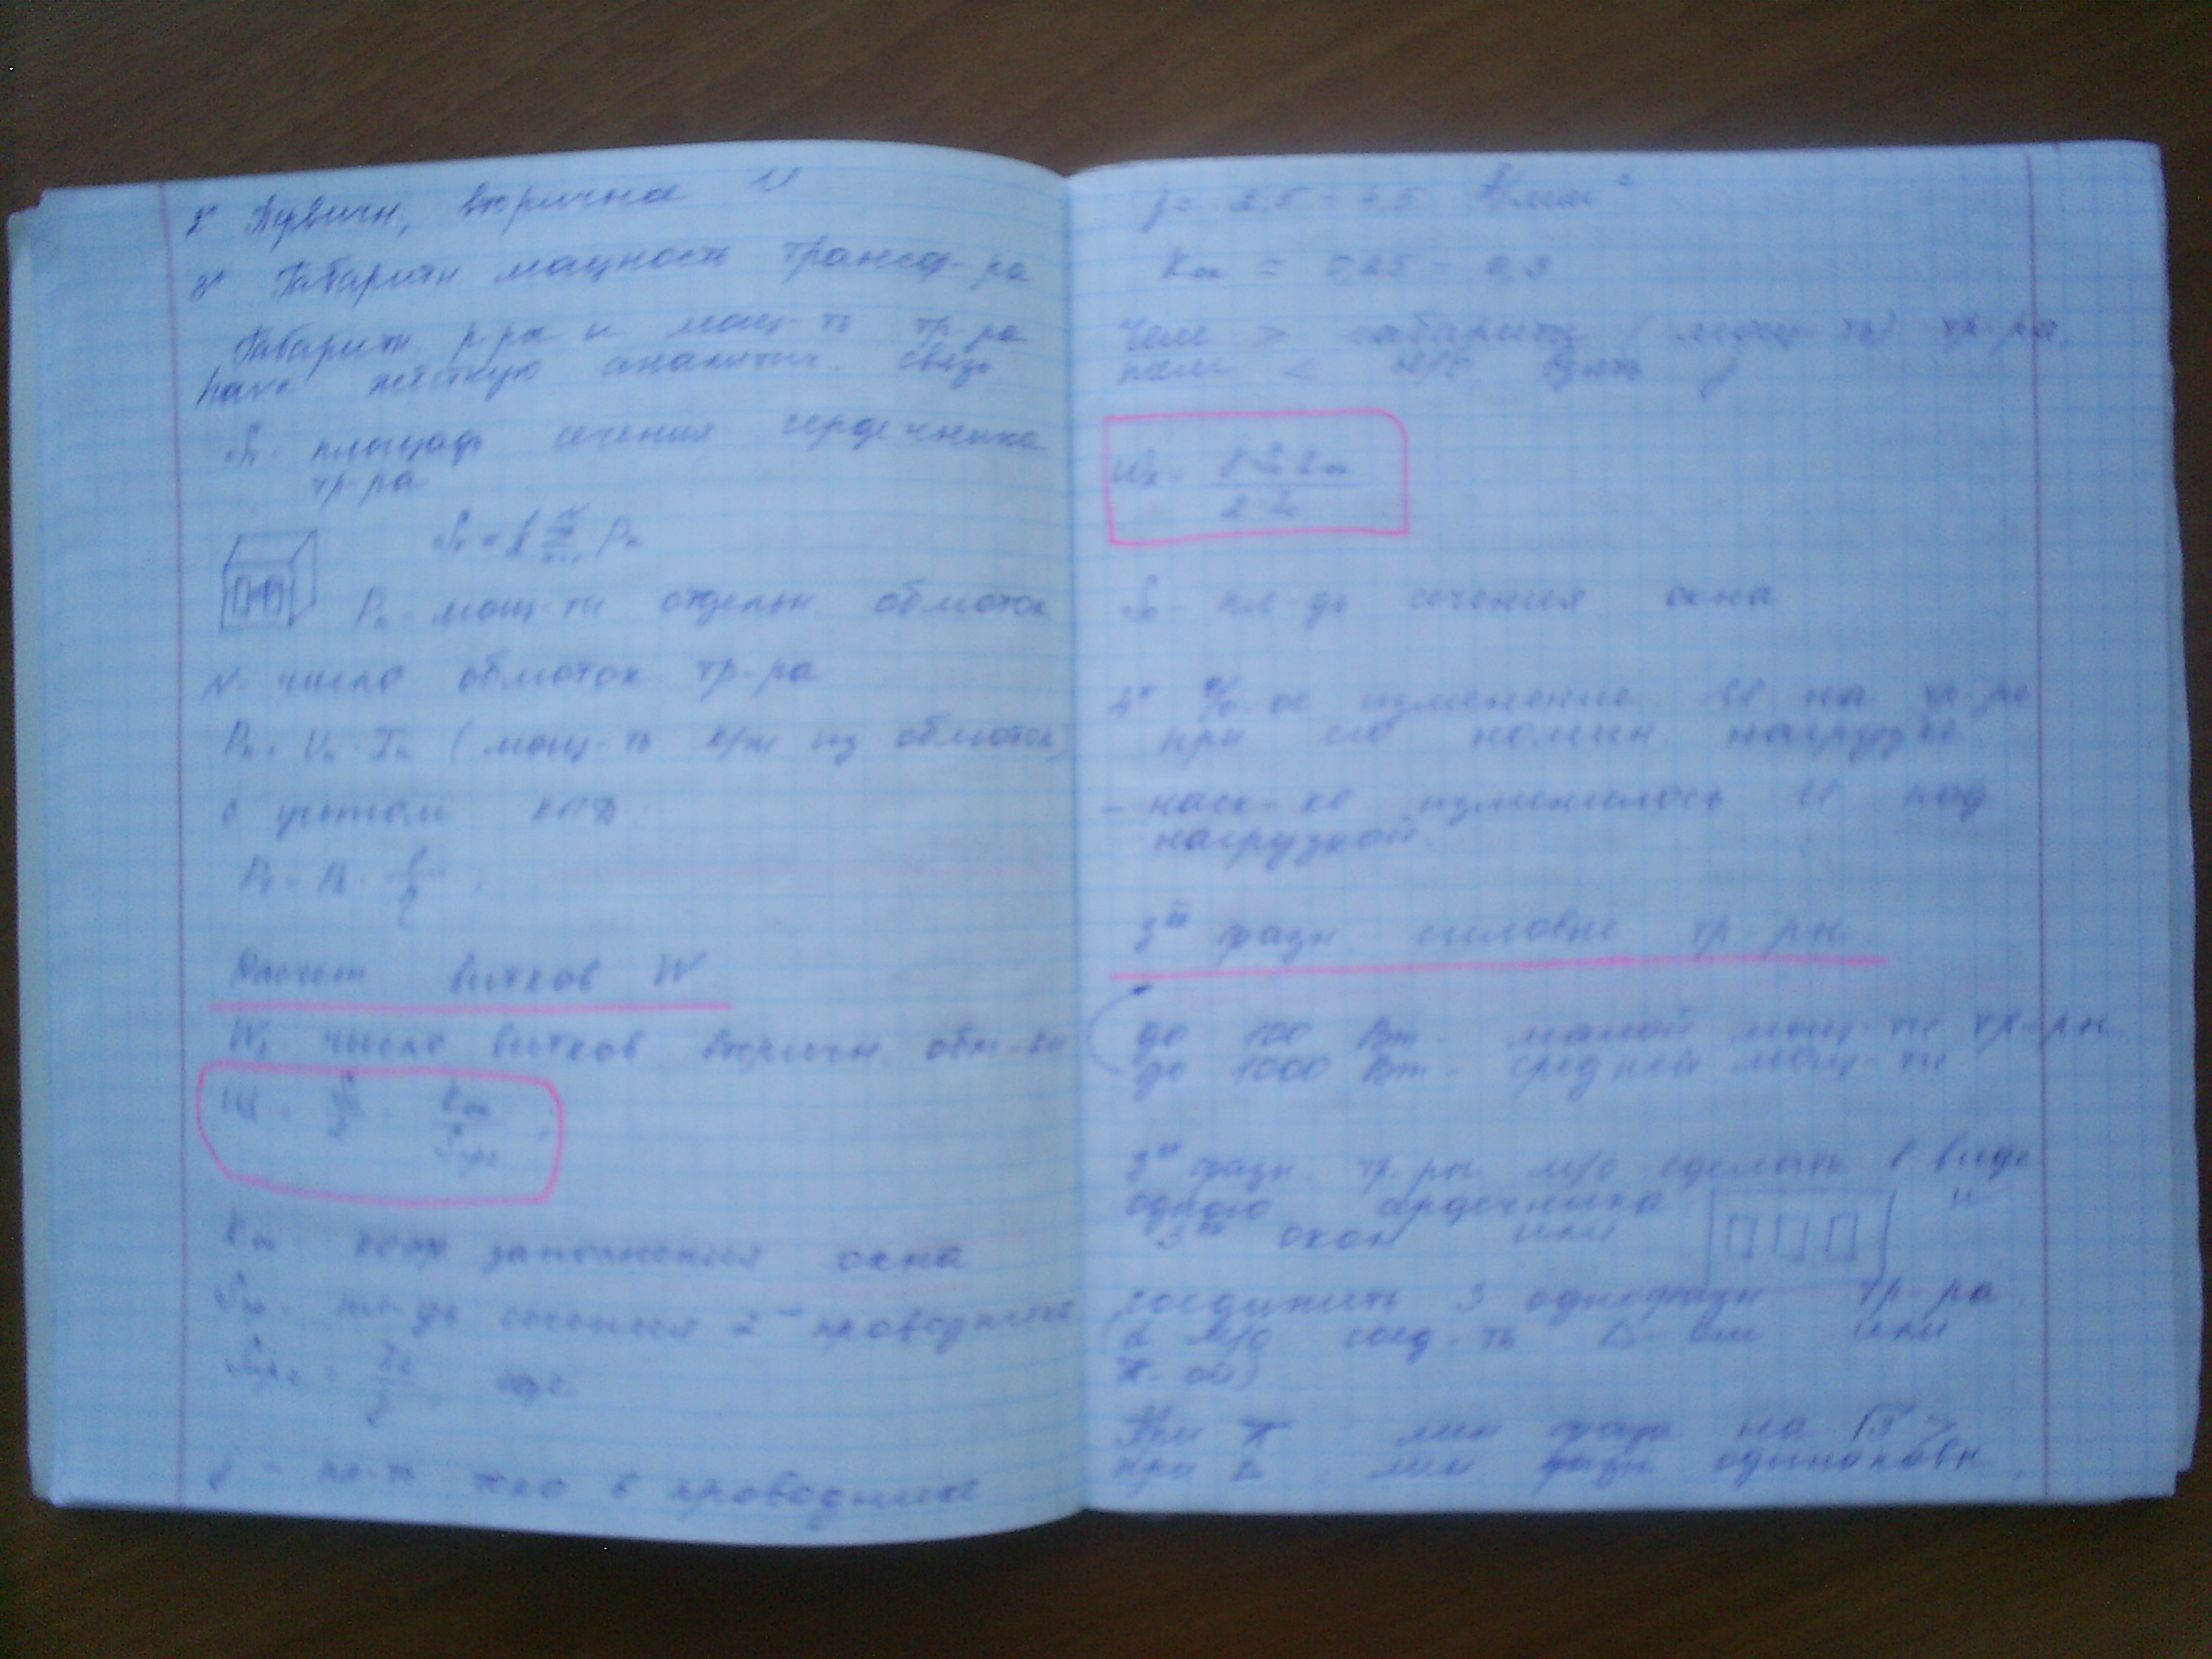 2° Первичн, вторична U
3° Габаритн мощность трансф-ра
Габаритн. р-ры и мощ-ть тр-ра
have жёсткую аналитич. связь.
площадь сечения сердечника
тр-ра
Pn - мощ-ти отдельн. обмоток
N - число обмоток тр-ра
Pn = Un · In (мощ-ть к/ж из обмоток)
с учётом КПД
P1 = P2 ·
Расчёт витков W
W2 - число витков вторичн. обм-ки
Kок - коэф заполнения окна
Sпр - пл-дь сечения 2 проводника
Sпр2 = I2/j
j - пл-ть тока в проводнике
j = 2,5 - 4,5 А/мм²
Kок = 0,25 - 0,3
Чем > габариты (мощ-ть) тр-ра,
тем < м/о взять j.
W2 =
S0 - пл-дь сечения окна
4° %-ое изменение U на тр-ре
при его номин. нагрузке.
- наск-ко изменилось U под
нагрузкой.
3х фазн. силовые тр-ры.
до 100 Вт - малой мощ-ти тр-ры
до 1000 Вт - средней мощ-ти
3х фазн. тр-ры м/о сделать в виде
одного сердечника и
3х окон или
соединить 3 однофазн тр-ра
(а м/о соед-ть Δ-ом или
при Δ лин фазн одинаковы.